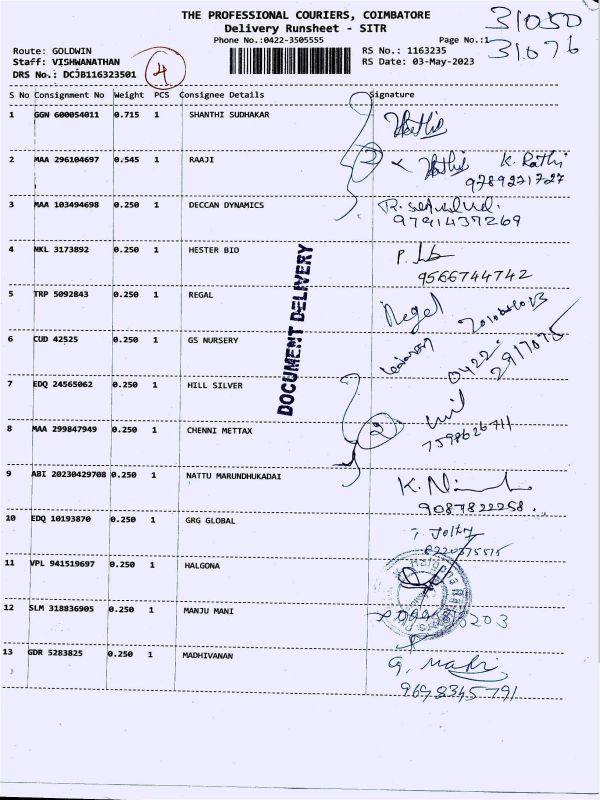 THE PROFESSIONAL COURIERS, COIMBATORE
31050
Delivery Runsheet - SITR
31076
Phone No.:0422-3505555 Page No.:1
Route: GOLDWIN RS No.: 1163235
Staff: VISHWANATHAN RS Date: 03-May-2023
DRS No.: DCJB116323501 4
S No Consignment No Weight PCS Consignee Details Signature
1 GGN 600054011 0.715 1 SHANTHI SUDHAKAR
2 MAA 296104697 0.545 1 RAAJI 2 K. Rathi
9789221727
3 MAA 103494698 0.250 1 DECCAN DYNAMICS
9791437269
4 NKL 3173892 0.250 1 HESTER BIO
9566744742
5 TRP 5092843 0.250 1 REGAL Regel
6 CUD 42525 0.250 1 GS NURSERY 0422
2917075
DOCUMENT DELIVERY
7 EDQ 24565062 0.250 1 HILL SILVER
8 MAA 299847949 0.250 1 CHENNI METTAX 2
7598626711
9 ABI 20230429708 0.250 1 NATTU MARUNDHUKADAI
9087822258.
10 EDQ 10193870 0.250 1 GRG GLOBAL
8220375515
11 VPL 941519697 0.250 1 HALGONA
12 SLM 318836905 0.250 1 MANJU MANI
13 GDR 5283825 0.250 1 MADHIVANAN
9698345791